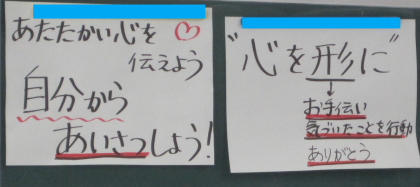 あたたかい心を♡
伝えよう
自分から
あいさつしよう!
"心を形に"
↓
お手伝い
気づいたことを行動
ありがとう